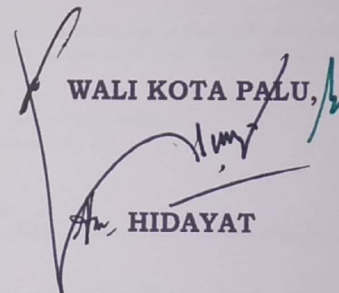 WALI KOTA PALU,
HIDAYAT